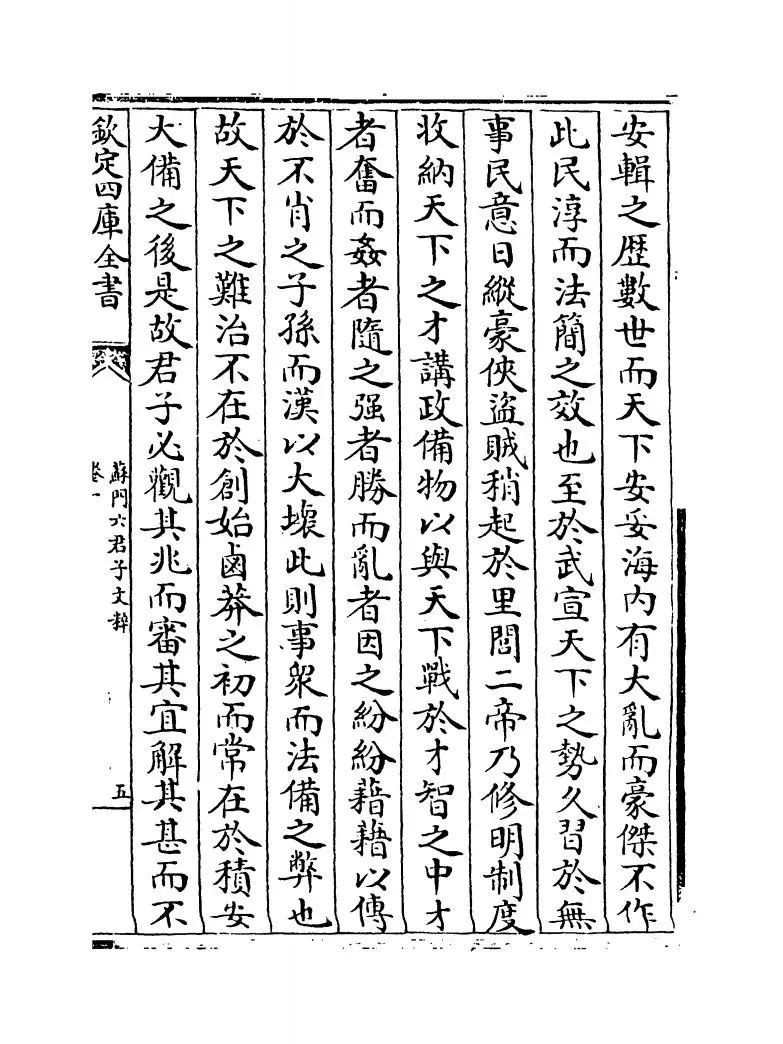 安輯之歴數世而天下安妥海内有大亂而豪傑不作
此民淳而法簡之效也至於武宣天下之勢久習於無
事民意日縱豪俠盜賊稍起於里閭二帝乃修明制度
收納天下之才講政備物以與天下戰於才智之中才
者奮而姦者隨之强者勝而亂者因之紛紛藉藉以傳
於不肖之子孫而漢以大壊此則事衆而法備之弊也
故天下之難治不在於創始鹵莽之初而常在於積安
大備之後是故君子必觀其兆而審其宜解其甚而不
欽定四庫全書
蘇門六君子文粹
卷一
五